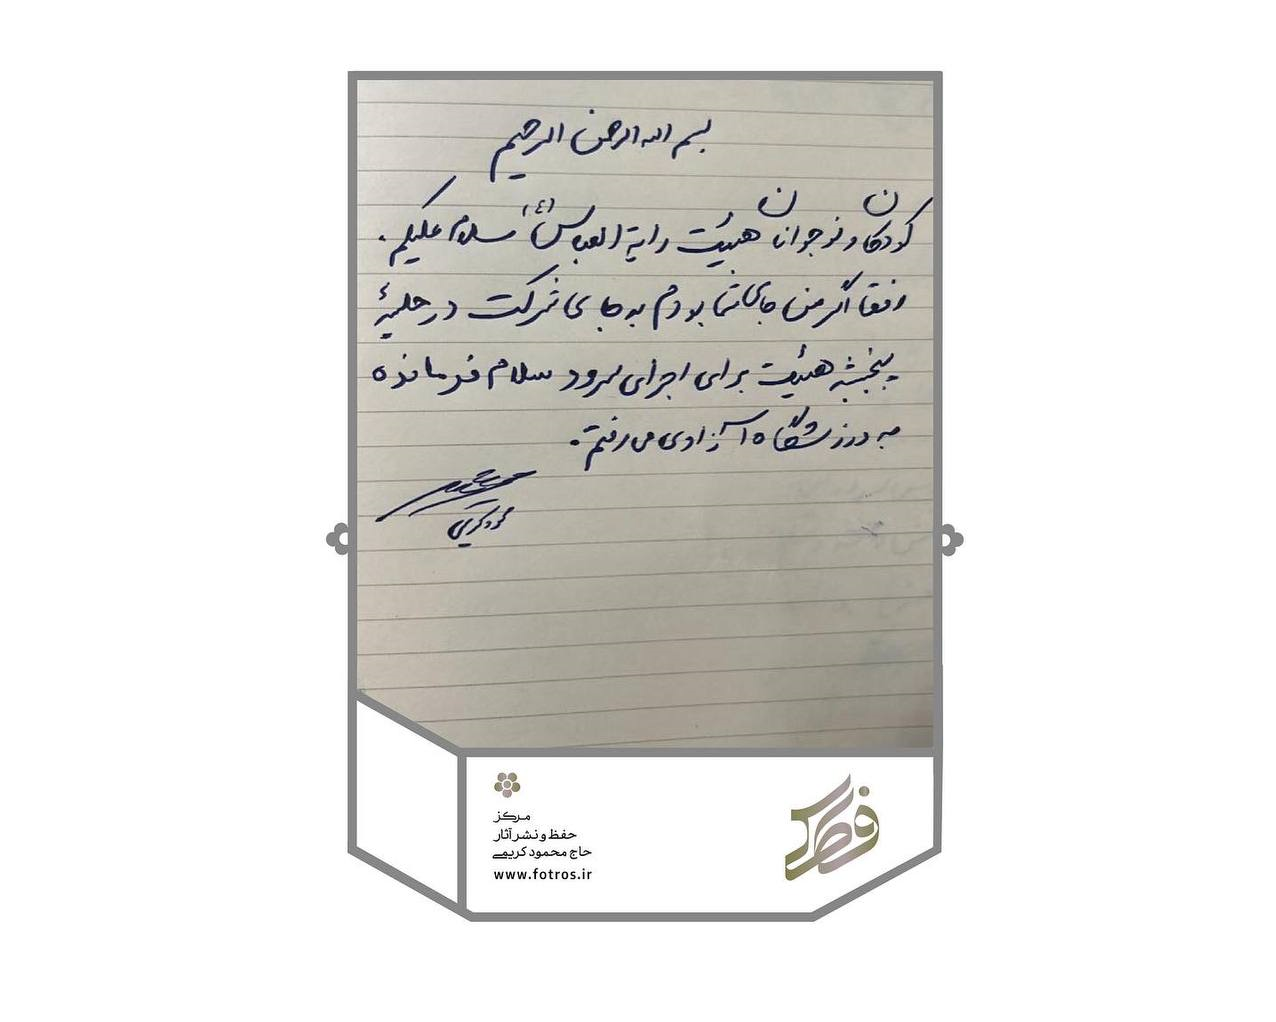 بسم الله الرحمن الرحیم
کودکان و نوجوانان هیئت رایة العباس (ع) سلام علیکم.
رفقا اگر من جای شما بودم به جای شرکت در جلسۀ
پنجشبه هیئت برای اجرای سرود سلام فرمانده
به ورزشگاه آزادی می رفتم.
محمود کریمی
فطرس
مرکز
حفظ و نشر آثار
حاج محمود کریمی
www.fotros.ir